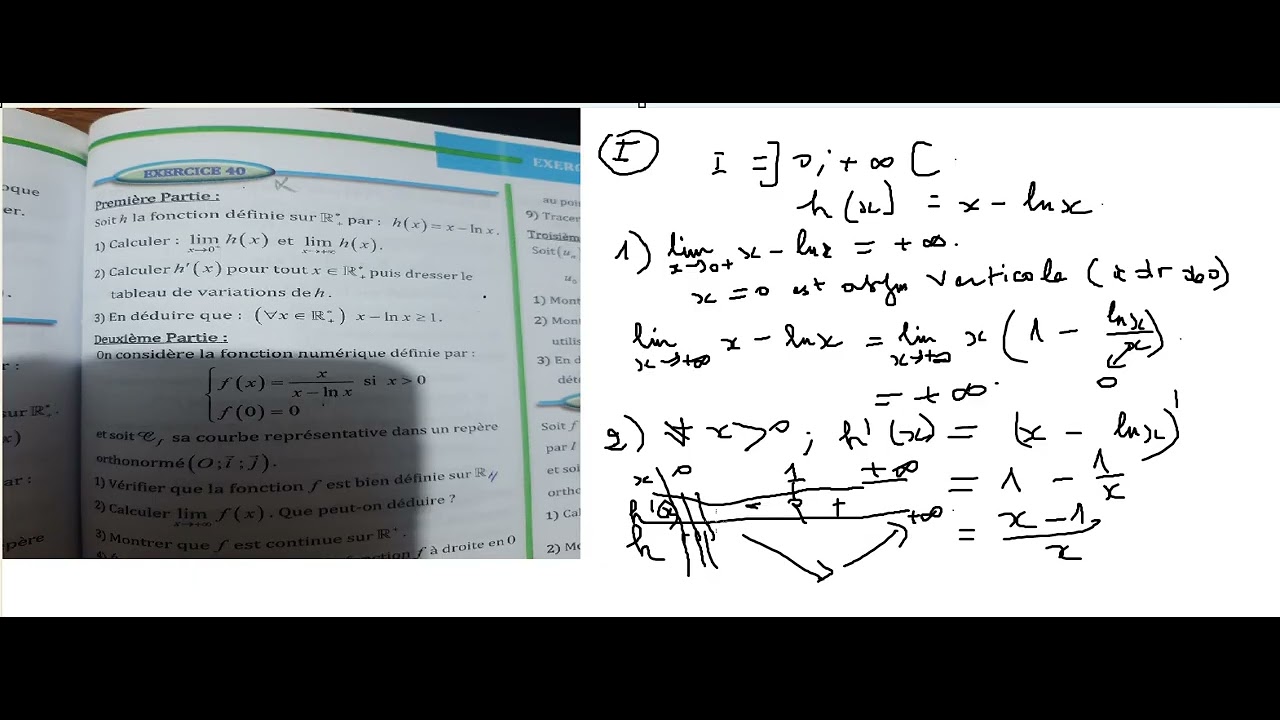 oque
er.
EXERC
EXERCICE 40
Première Partie :
Soit h la fonction définie sur ℝ*₊ par : h(x) = x − ln x.
1) Calculer : lim x→0⁺ h(x) et lim x→+∞ h(x).
2) Calculer h'(x) pour tout x ∈ ℝ*₊ puis dresser le
tableau de variations de h.
3) En déduire que : (∀x ∈ ℝ*₊) x − ln x ≥ 1.
Deuxième Partie :
On considère la fonction numérique définie par :
f(x) = x / (x − ln x) si x > 0
f(0) = 0
et soit 𝒞f sa courbe représentative dans un repère
orthonormé (O; i⃗; j⃗).
1) Vérifier que la fonction f est bien définie sur ℝ
2) Calculer lim x→+∞ f(x). Que peut-on déduire ?
3) Montrer que f est continue sur ℝ⁺.
fonction f à droite en 0
au poi
9) Tracer
Troisièm
Soit (uₙ
u₀
1) Mont
2) Mon
utilis
3) En d
déte
Soit f
par l
et soi
ortho
1) Cal
2) Mo
I
I = ]0; +∞[
h(x) = x − ln x
1) lim x→0+ x − ln x = +∞.
x = 0 est asym verticale (
lim x→+∞ x − ln x = lim x→+∞ x (1 − ln x / x)
0
= +∞.
2) ∀ x > 0 ; h'(x) = (x − ln x)'
= 1 − 1/x
= x − 1 / x
x 0 1 +∞
h'(x) − +
h +∞